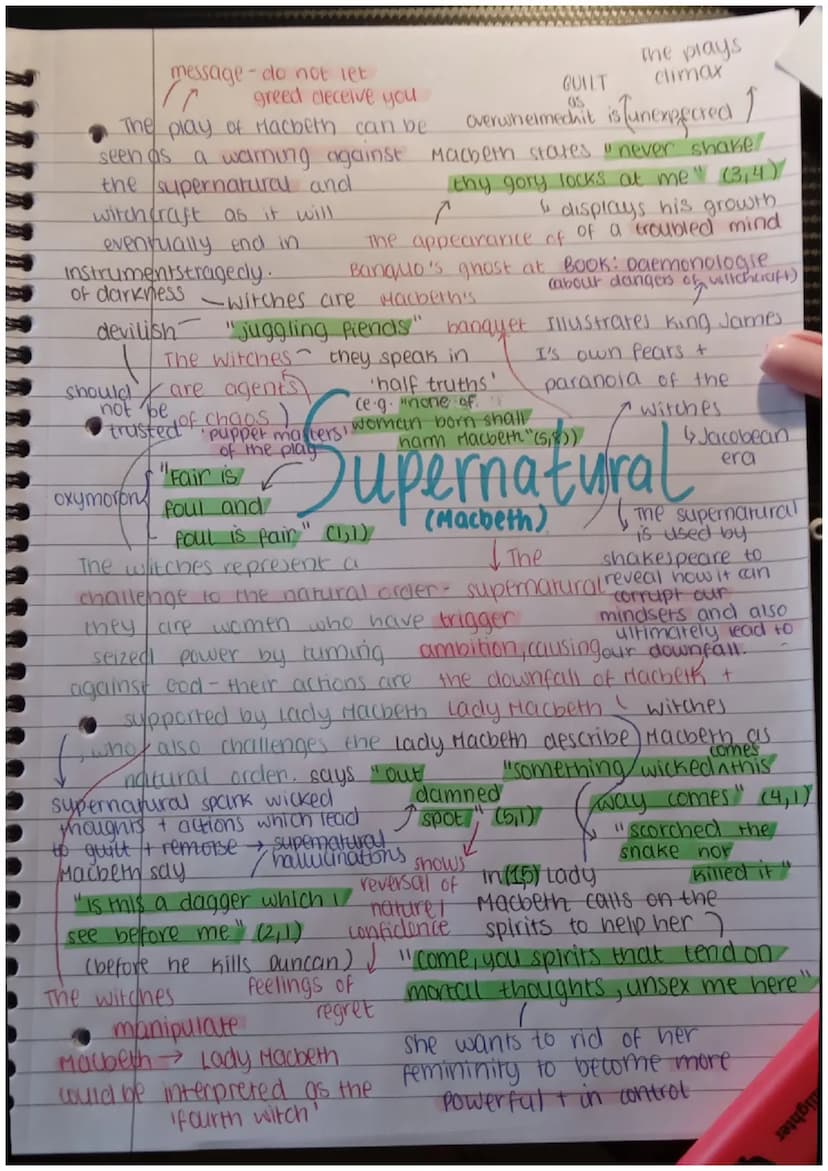 message - do not let
greed deceive you
The play of Macbeth can be
seen as a warning against
the supernatural and
witchcraft as it will
eventually end in
tragedy.
instruments
of darkness
witches are
devilish
"juggling fiends"
The witches
are agents
of chaos
they speak in
'half truths'
(e.g. "none of
woman born shall
harm Macbeth"
should
not be
trusted
'puppet masters'
of the play
"Fair is
foul and
foul is fair" (1,1)
oxymoron
GUILT
as
overwhelmed
it is unexpected
The plays
climax
Macbeth states "never shake
thy gory locks at me" (3,4)
↳ displays his growth
of a troubled mind
The appearance of
Banquo's ghost at
Macbeth's
banquet
BOOK: Daemonologie
(about dangers of witchcraft)
Illustrates King James
I's own fears +
paranoia of the
witches
↳ Jacobean
era
Supernatural
(Macbeth)
The supernatural
is used by
shakespeare to
reveal how it can
corrupt our
mindsets and also
ultimately lead to
our downfall.
The
supernatural
trigger
ambition, causing
the downfall of Macbeth +
Lady Macbeth
The witches represent a
challenge to the natural order -
they are women who have
seized power by turning
against God - their actions are
supported by Lady Macbeth
, who also challenges the
natural order.
supernatural spark wicked
thoughts + actions which lead
to guilt + remorse → supernatural
hallucinations
Macbeth say
"Is this a dagger which I
see before me" (2,1)
(before he kills Duncan)
Lady Macbeth
says "out
damned
spot" (5,1)
shows
reversal of
nature /
confidence
feelings of
regret
witches
describe Macbeth as
comes
"something wicked ^ this
way comes" (4,1)
"scorched the
snake nor
killed it"
In (1,5) Lady
Macbeth calls on the
spirits to help her
"come, you spirits that tend on
mortal thoughts, unsex me here"
she wants to rid of her
femininity to become more
powerful + in control
The witches
manipulate
Macbeth → Lady Macbeth
could be interpreted as the
'fourth witch'